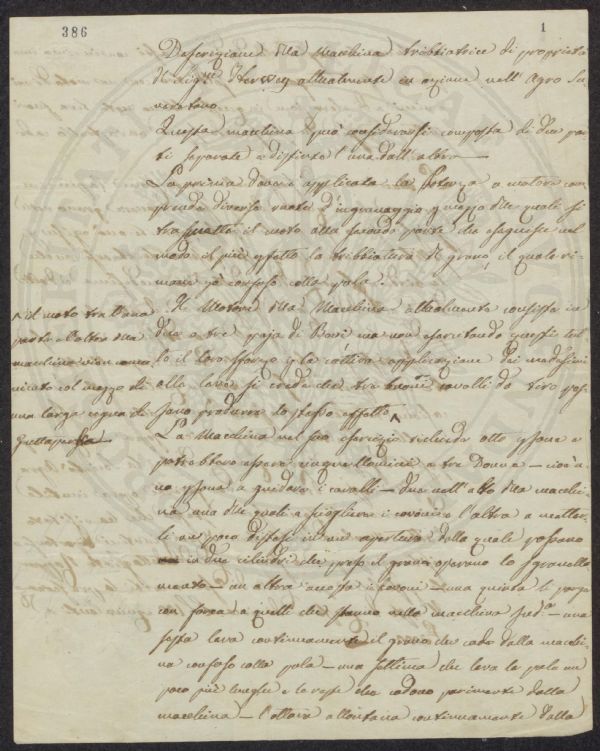 386
1
Descrizione della Macchina tribbiatrice di proprietà
del Sig.re Herway attualmente in azione nell'Agro Su
veretano.
Questa macchina può considerarsi composta di due par
ti separate e distinte l'una dall'altra —
La prima dove è applicata la forza o motore com
prende diverse ruote d'ingranaggio p mezzo delle quali si
trasmette il moto alla seconda parte che eseguisce nel
modo il più esatto la tribbiatura del grano, il quale ri
mane già confuso colla pula.
Il Motore della Macchina attualmente consiste in
due o tre paja di Bovi ma non esercitando questi tut
to il loro sforzo p la cattiva applicazione dei medesimi
alla leva si crede che tre buoni cavalli da tiro pos
sano produrre lo stesso effetto ^
^ il moto tra l'una
parte e l'altra della
macchina vien comu
nicato col mezzo di
una larga cigna di
Guttaperka
La Macchina nel suo esercizio richiede otto persone e
potrebbero essere cinque Uomini e tre Donne — cioè u
na persona a guidare i cavalli — due nell'alto della macchi
na una delle quali a sciogliere i covoni e l'altra a metter
li un poco distesi in un apertura dalla quale passano
in due cilindri che preso il grano operano lo sgranella
mento — un altra accosta i covoni — una quinta li porge
con forca a quelli che stanno nella macchina sud.a — una
sesta leva continuamente il grano che cade dalla macchi
na confuso colla pula — una settima che leva la pula un
poco più lunghe e le reste che cadono parimente dalla
macchina — l'ottava allontana continuamente dalla